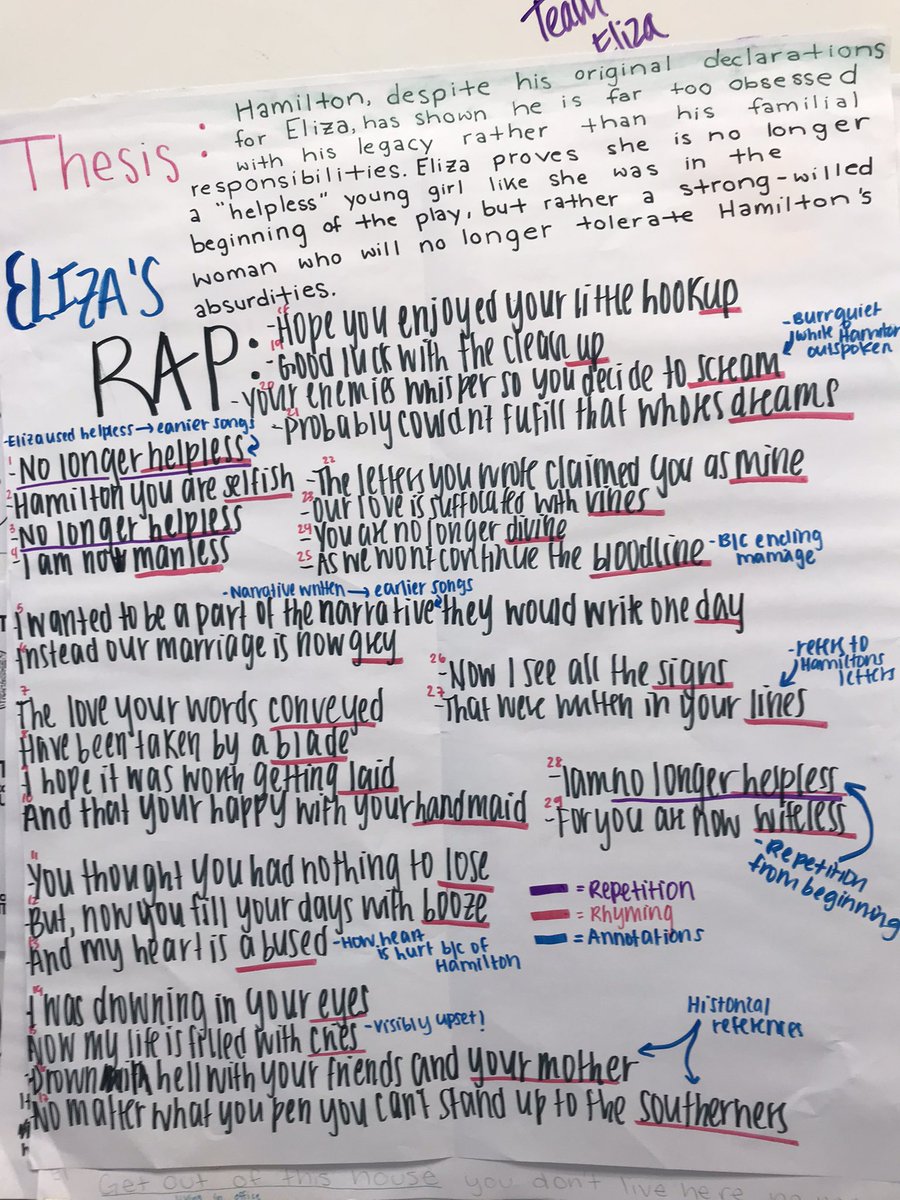 Team
Eliza
Thesis:
Hamilton, despite his original declarations
for Eliza, has shown he is far too obsessed
with his legacy rather than his familial
responsibilities. Eliza proves she is no longer
a "helpless" young girl like she was in the
beginning of the play, but rather a strong-willed
woman who will no longer tolerate Hamilton's
absurdities.
ELIZA'S
RAP:
-Eliza used helpless → earlier songs
1 -No longer helpless
2 -Hamilton you are selfish
3 -No longer helpless
4 -I am now manless
-Narrative written → earlier songs
5 -I wanted to be a part of the narrative they would write one day
6 -Instead our marriage is now grey
7 -The love your words conveyed
8 -Have been taken by a blade
9 -I hope it was worth getting laid
10 -And that your happy with your handmaid
11 -You thought you had nothing to lose
12 -But, now you fill your days with booze
13 -And my heart is abused
-How heart
is hurt b/c of
Hamilton
14 -I was drowning in your eyes
15 -Now my life is filled with cries
-visibly upset!
16 -Drown hell with your friends and your mother
17 -No matter what you pen you can't stand up to the southerners
Historical
references
18 -Hope you enjoyed your little hookup
19 -Good luck with the clean up
20 -your enemies whisper so you decide to scream
-Burr quiet
while Hamilton
outspoken
21 -Probably couldn't fufill that whores dreams
22 -The letters you wrote claimed you as mine
23 -our love is suffocated with vines
24 -You are no longer divine
25 -As we wont continue the bloodline
-B/C ending
marriage
26 -Now I see all the signs
27 -That were written in your lines
-refers to
Hamiltons
letters
28 -I am no longer helpless
29 -For you are now wifeless
-Repetition
from beginning
= Repetition
= Rhyming
= Annotations
Get out of this house you don't live here